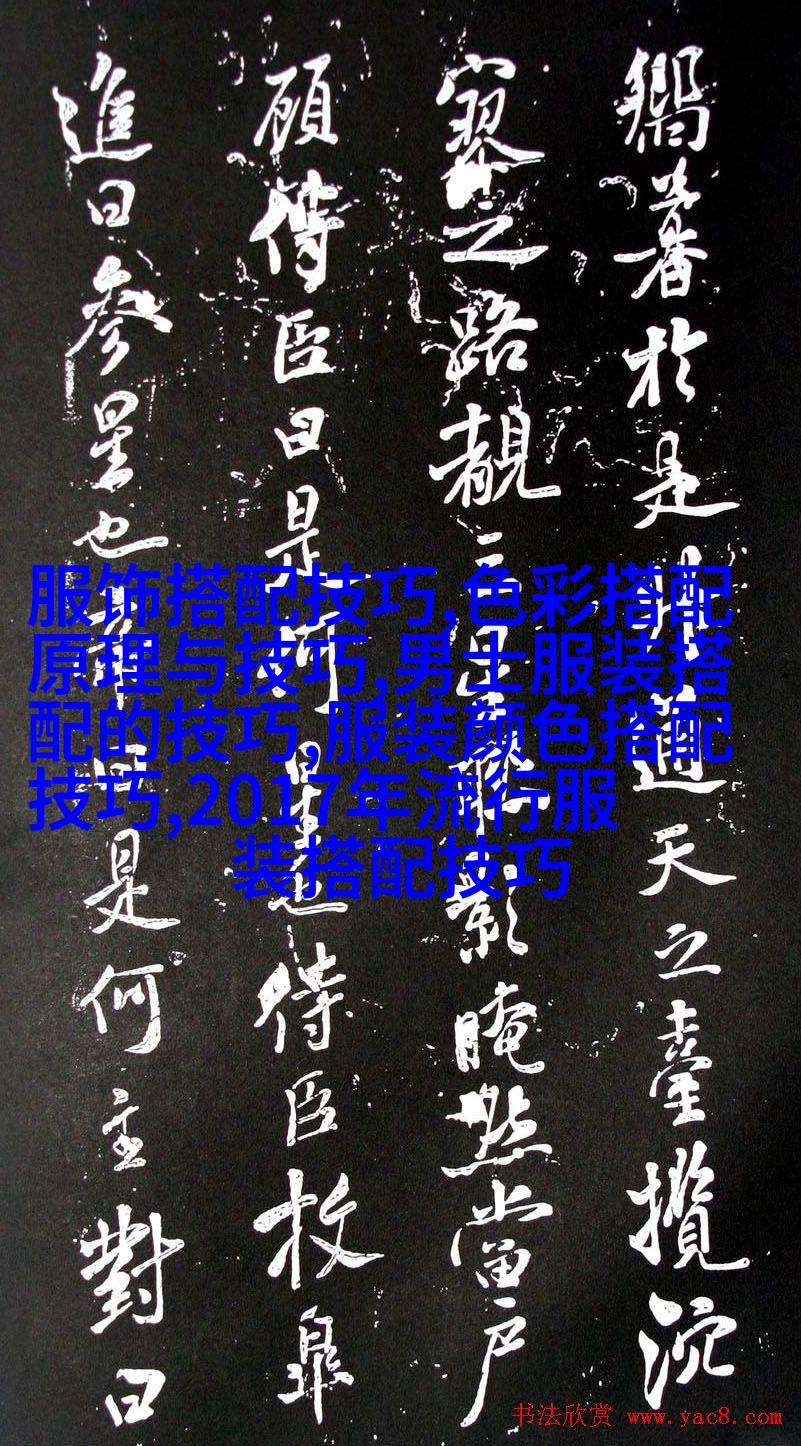 於是升通天之臺攬沉
寥之路靚三星影晻然當戶
顧侍臣曰是何星也侍臣枚皋
進曰參星也帝曰是何主對曰
服饰搭配技巧,色彩搭配
原理与技巧,男士服装搭
配的技巧,服装颜色搭配
技巧,2017年流行服
装搭配技巧
书法欣赏 www.yac8.com